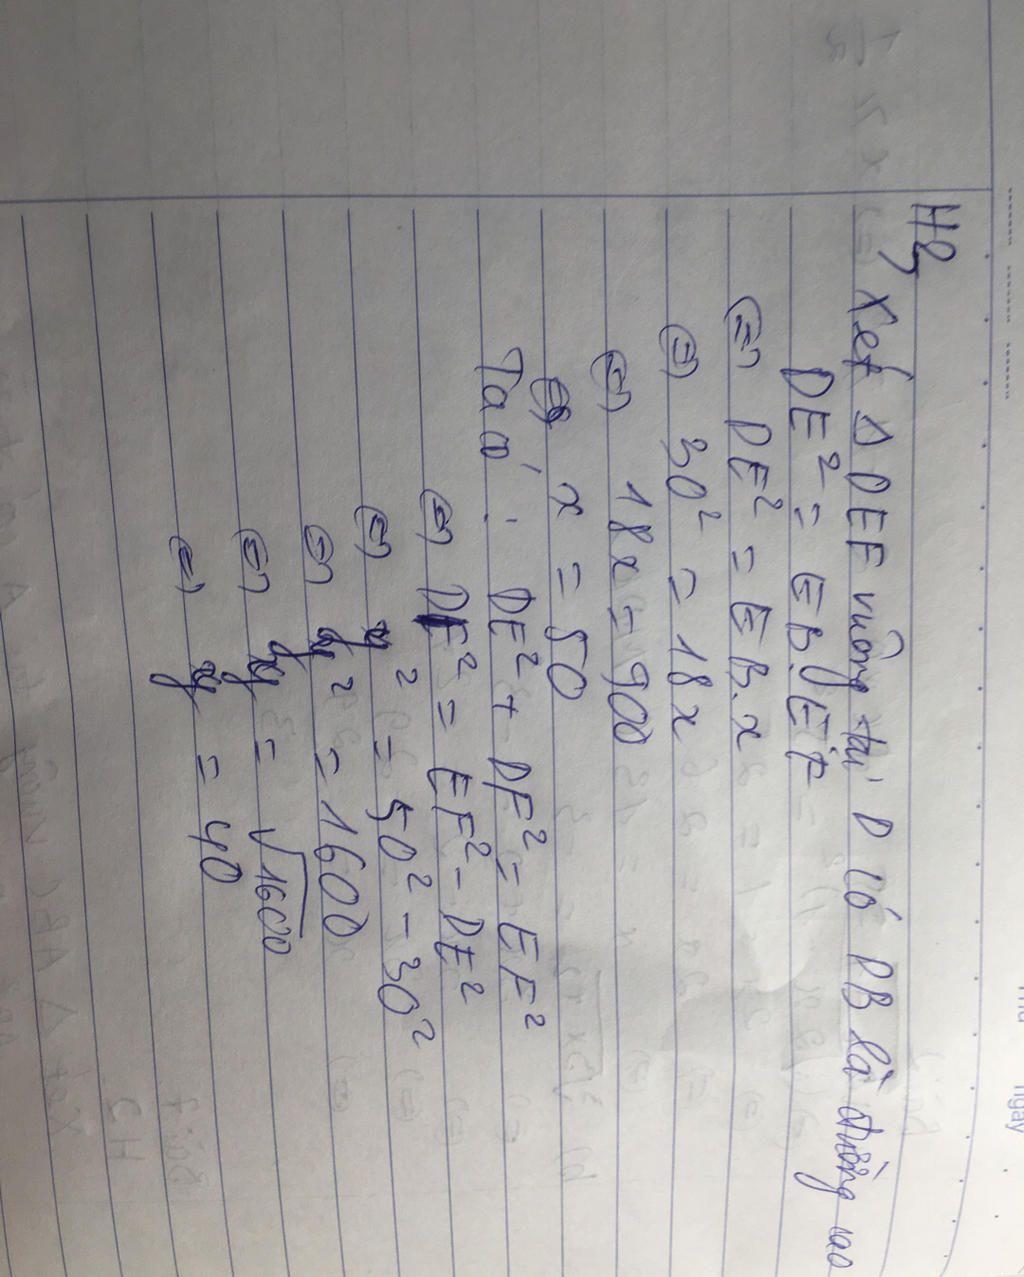 H8,
Xét Δ DEF vuông tại D có DB là đường cao
DE² = EB.EF
(=) DE² = EB.x
(=) 30² = 18x
(=) 18x = 900
(=) x = 50
Ta có : DE² + DF² = EF²
(=) DF² = EF² - DE²
(=) y² = 50² - 30²
(=) y² = 1600
(=) y = √1600
(=) y = 40
ngày